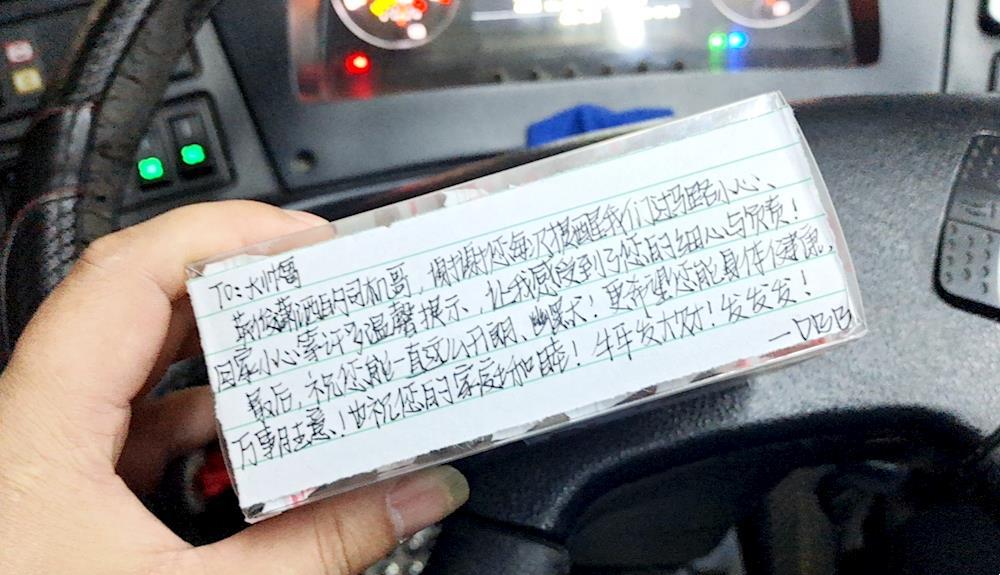 To: 大帅哥
亲爱潇洒的司机哥，谢谢您每次提醒我们过马路小心、
回家小心等许多温馨提示，让我感受到了您的细心与负责！
最后，祝您能一直这么开朗、幽默大！更希望您能身体健康，
万事胜意！也祝您的家庭越加和睦！牛年发大财！发发发！